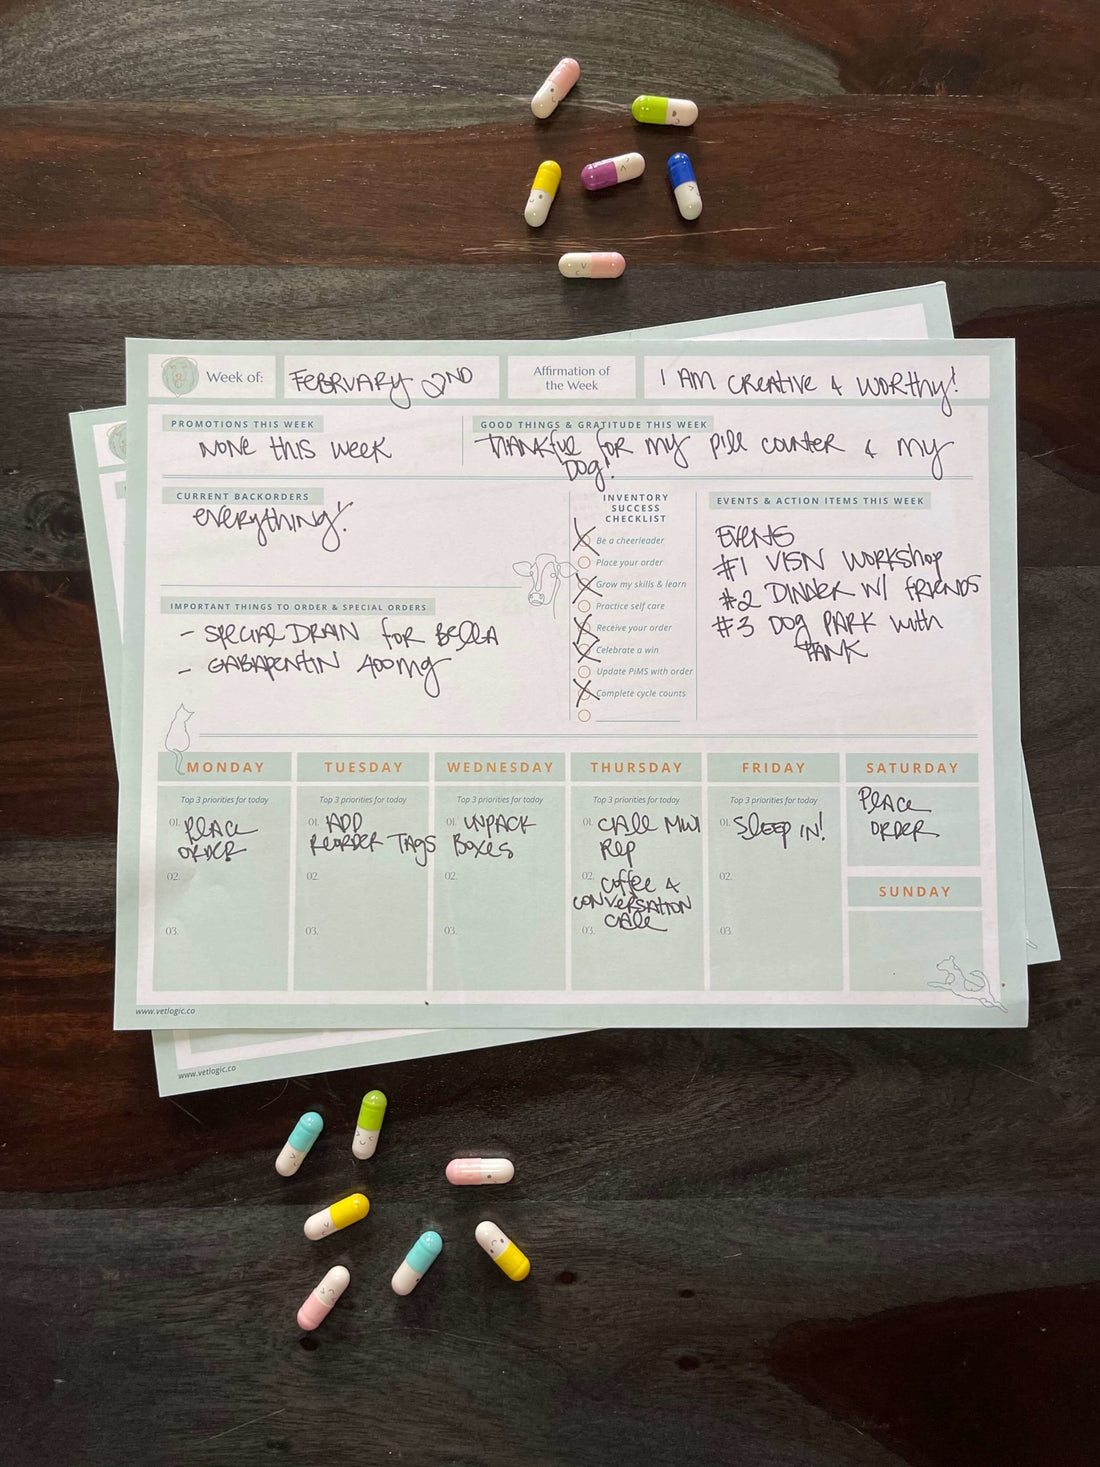 Week of:
FEBRUARY 2ND
Affirmation of
the Week
I AM CREATIVE & WORTHY!
PROMOTIONS THIS WEEK
NONE THIS WEEK
GOOD THINGS & GRATITUDE THIS WEEK
THANKFUL FOR MY PILL COUNTER & MY
DOG!
CURRENT BACKORDERS
EVERYTHING!
IMPORTANT THINGS TO ORDER & SPECIAL ORDERS
- SPECIAL DRAIN FOR BELLA
- GABAPENTIN 400mg
INVENTORY
SUCCESS
CHECKLIST
Be a cheerleader
Place your order
Grow my skills & learn
Practice self care
Receive your order
Celebrate a win
Update PiMS with order
Complete cycle counts
EVENTS & ACTION ITEMS THIS WEEK
EVENTS
#1 VISN WORKSHOP
#2 DINNER W/ FRIENDS
#3 DOG PARK WITH
HANK
MONDAY
Top 3 priorities for today
01. PLACE
ORDER
02.
03.
TUESDAY
Top 3 priorities for today
01. ADD
REORDER TAGS
02.
03.
WEDNESDAY
Top 3 priorities for today
01. UNPACK
BOXES
02.
03.
THURSDAY
Top 3 priorities for today
01. CALL MWI
REP
02. COFFEE &
CONVERSATION
03. CALL
FRIDAY
Top 3 priorities for today
01. SLEEP IN!
02.
03.
SATURDAY
PLACE
ORDER
SUNDAY
www.vetlogic.co
www.vetlogic.co